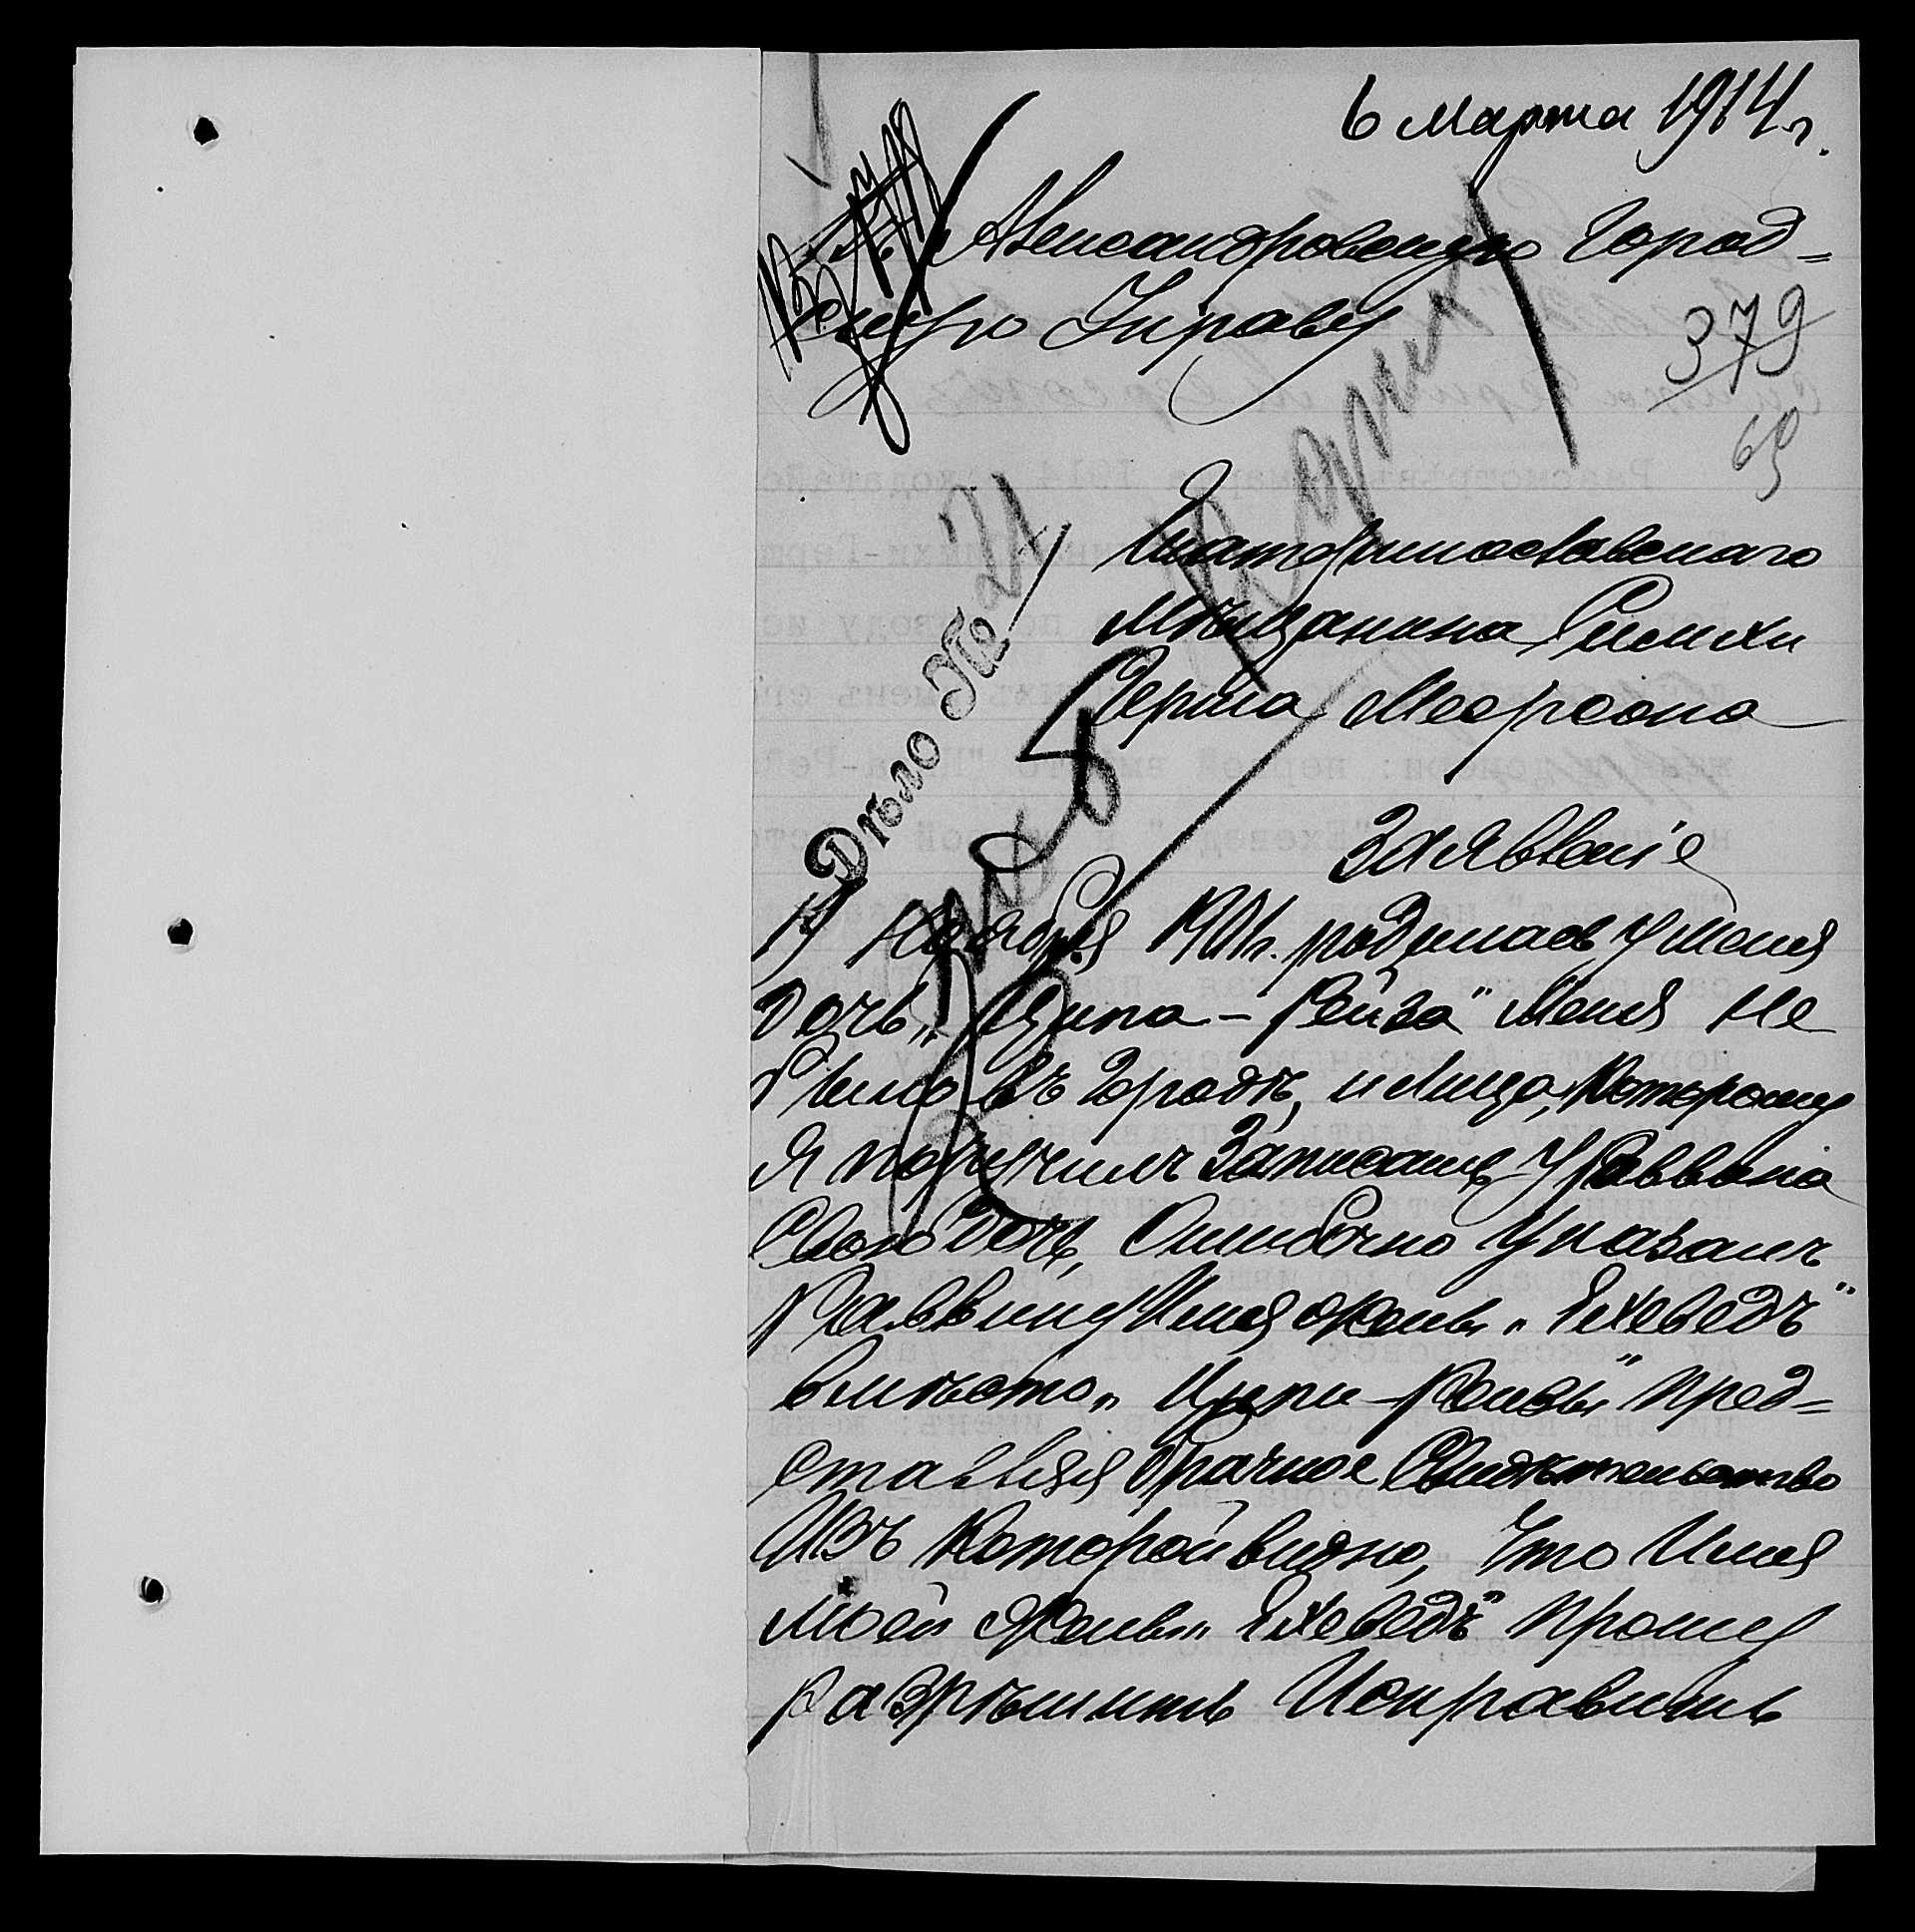 6 Марта 1914 г.
Александровскую Город=
скую Управу
379
69
Дѣло № 21
Екатеринославскаго
Мѣщанина Симхи
Герша Меерсона
Заявленіе
19 Ноября 1901г. родилась у меня
дочь „Ципа-Рейза" Меня не
было въ городѣ, и лицо, которому
я поручилъ записать у Раввина
свою дочь, ошибочно указалъ
Раввину имя жены „Ехеведъ"
вмѣсто „Ципы-Рейзы" пред=
ставляя брачное свидѣтельство
изъ которой видно, что имя
моей жены „Ехеведъ" прошу
разрѣшить исправить